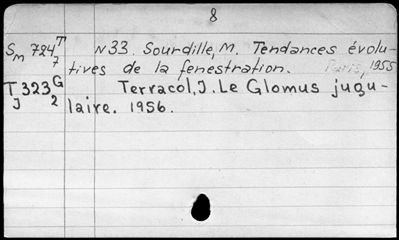 8
Sm 724 T/7 N33. Sourdille, M. Tendances évolu-
tives de la fenestration. Paris, 1955
T 323 G Terracol, J. Le Glomus jugu-
J 2 laire. 1956.